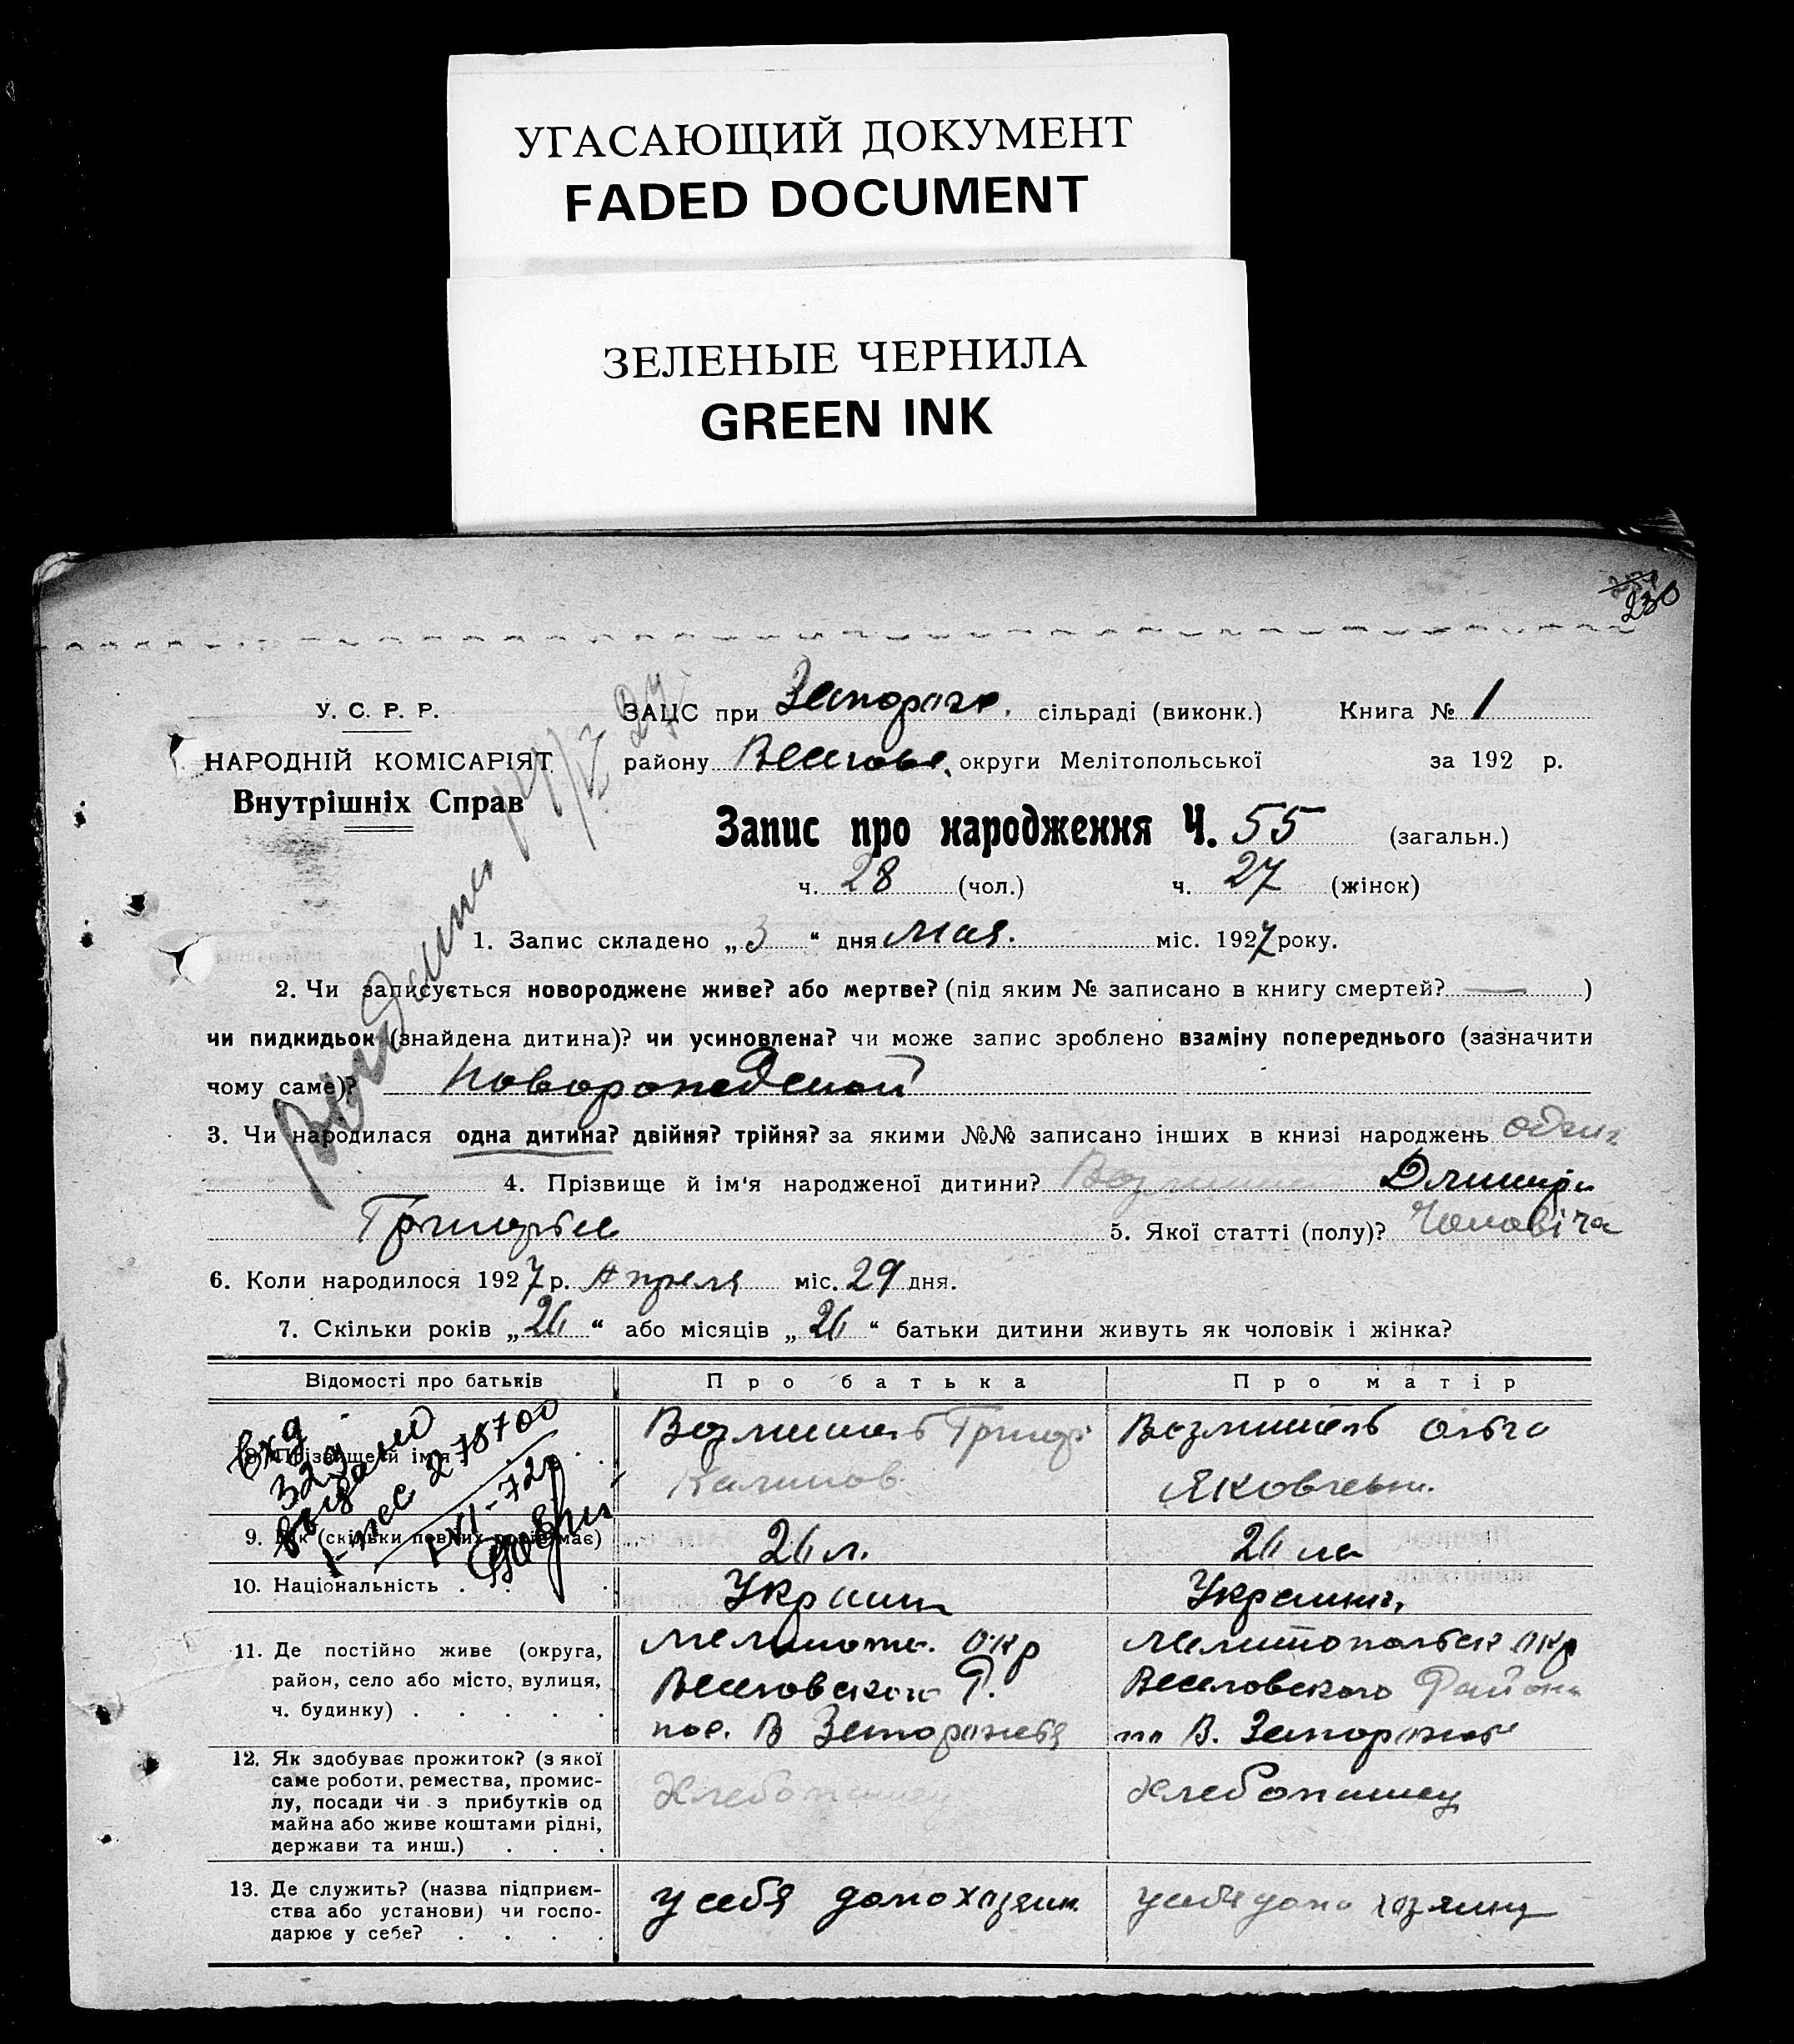 УГАСАЮЩИЙ ДОКУМЕНТ
FADED DOCUMENT
ЗЕЛЕНЫЕ ЧЕРНИЛА
GREEN INK
230
У. С. Р. Р.
НАРОДНІЙ КОМІСАРІЯТ
Внутрішніх Справ
ЗАЦС при Запорож. сільраді (виконк.) Книга № 1
району Веселовс. округи Мелітопольської за 192 р.
Запис про народження Ч. 55 (загальн.)
ч. 28 (чол.) ч. 27 (жінок)
1. Запис складено „ 3 “ дня Мая. міс. 1927 року.
2. Чи записується новороджене живе? або мертве? (під яким № записано в книгу смертей? — )
чи пидкидьок (знайдена дитина)? чи усиновлена? чи може запис зроблено взаміну попереднього (зазначити
чому саме)? Новорожденой
3. Чи народилася одна дитина? двійня? трійня? за якими №№ записано інших в книзі народжень
4. Прізвище й ім'я народженої дитини? Дмитри
Григорьев 5. Якої статті (полу)? Чоловіча
6. Коли народилося 1927 р. Апреля міс. 29 дня.
7. Скільки років „ “ або місяців „ “ батьки дитини живуть як чоловік і жінка?
Відомості про батьків Про батька Про матір
8. Прізвище й ім'я Возмитель Григор Возмитель Ольга
Калинов. Яковлевн.
Вхд
329
видано
9. Вік (скільки повних років має)
10. Національність . . . Украин Украинк,
11. Де постійно живе (округа, Мелитопо. окр Мелитопольск окр
район, село або місто, вулиця, Веселовского Р. Веселовского Района
ч. будинку) . . . . . пос. В Запорожья В. Запорожье
12. Як здобуває прожиток? (з якої
саме роботи, ремества, промис- Хлебопашец Хлебопашец
лу, посади чи з прибутків од
майна або живе коштами рідні,
держави та инш.) . . .
13. Де служить? (назва підприєм- у себя домохозяин у себя
ства або установи) чи госпо-
дарює у себе? . . . .